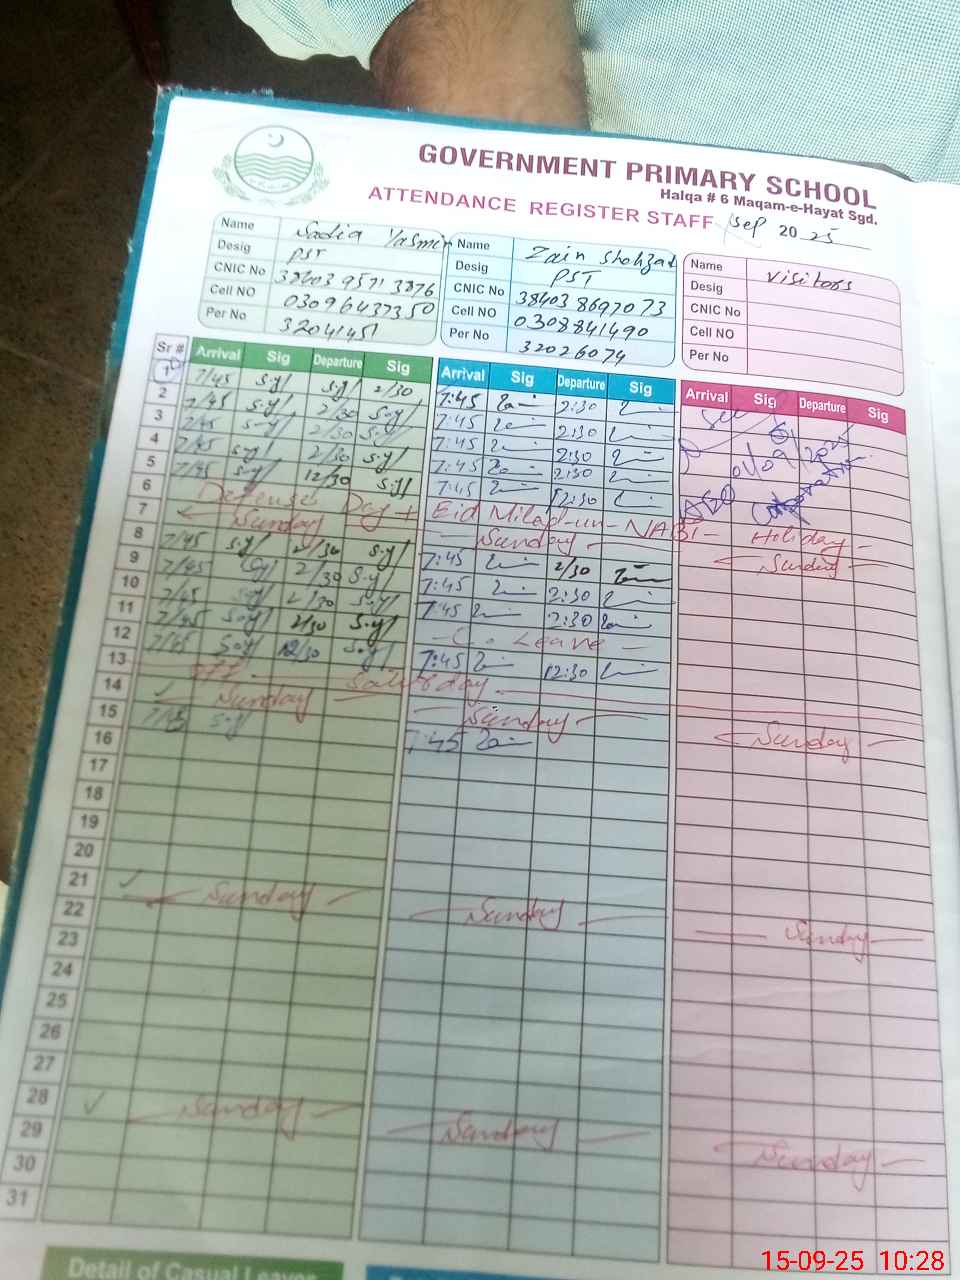 GOVERNMENT PRIMARY SCHOOL
Halqa # 6 Maqam-e-Hayat Sgd.
ATTENDANCE REGISTER STAFF Sep 2025
Name Sadia Yasmin
Desig PST
CNIC No 38403 9571 3876
Cell NO 03096437350
Per No 32041451
Name Zain Shahzad
Desig PST
CNIC No 38403 8697073
Cell NO 0308841490
Per No 32026074
Name Visitors
Desig
CNIC No
Cell NO
Per No
Sr # Arrival Sig Departure Sig Arrival Sig Departure Sig Arrival Sig Departure Sig
1 7/45 S.y/ S.y/ 2/30 7:45 2:30
2 7/45 S.y/ 2/30 S.y/ 7:45 2:30
3 7/45 S.y/ 2/30 S.y/ 7:45 2:30
4 7/45 S.y/ 2/30 S.y/ 7:45 2:30
5 7/45 S.y/ 12/30 S.y/ 7:45 12:30
6 Defense Day + Eid Milad-un-NABI - Holiday -
7 Sunday Sunday Sunday
8 7/45 S.y/ 2/30 S.y/ 7:45 2/30
9 7/45 S.y/ 2/30 S.y/ 7:45 2:30
10 7/45 S.y/ 2/30 S.y/ 7:45 2:30
11 7/45 S.y/ 2/30 S.y/ - C. Leave -
12 7/45 S.y/ 12/30 S.y/ 7:45 12:30
13 Off - Saturday
14 Sunday Sunday Sunday
15 7/45 S.y/ 7:45
16
17
18
19
20
21 Sunday Sunday Sunday
22
23
24
25
26
27
28 Sunday Sunday Sunday
29
30
31
Detail of Casual Leaves
15-09-25 10:28